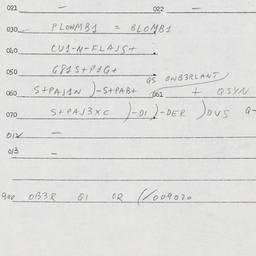 021 — 022 —
030 PLOWMB1 = BLOMB1
040 CU1-N-FLAJS+
050 G81S+P8G+
060 S+PAJ1N )-S+PAB+ 061 + QSYN
070 S+PAJ3XC )-DI )-DER )DVS G-
012 —
013 —
900 OB3R Q1 02 (/009020